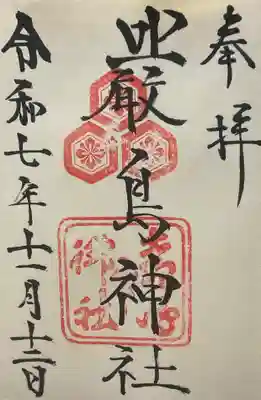 奉拝
嚴島神社
令和七年十一月十二日